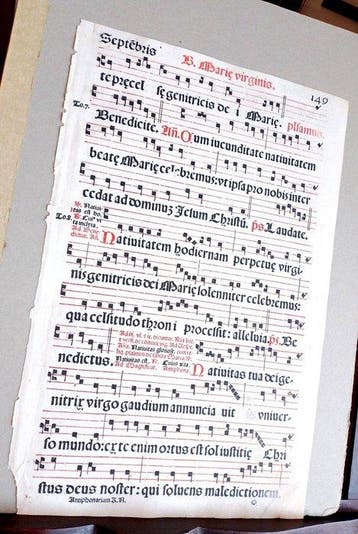 Septēbris
B. Marię virginis.
149
te pręcel sę genitricis de i Marię. p̄s
To.7.
Benedicite. Añ. Cum iucunditate natiuitatem
beatę Marię celebremus: vt ipsa pro nobis inter
cedat ad dominuȝ Jesum Christū. p̄s Laudate.
To.8.
Natiuitatem hodiernam perpetuę virgi
nis genitricis dei Marię solenniter celebremus:
qua celsitudo throni processit: alleluia. p̄s. Be
nedictus.
Natiuitas tua dei ge-
nitrix virgo gaudium annuncia uit vniuer-
so mundo: ex te enim ortus est sol iustitię Chri
stus deus noster: qui soluens maledictionem.
Anophonarium S. R.